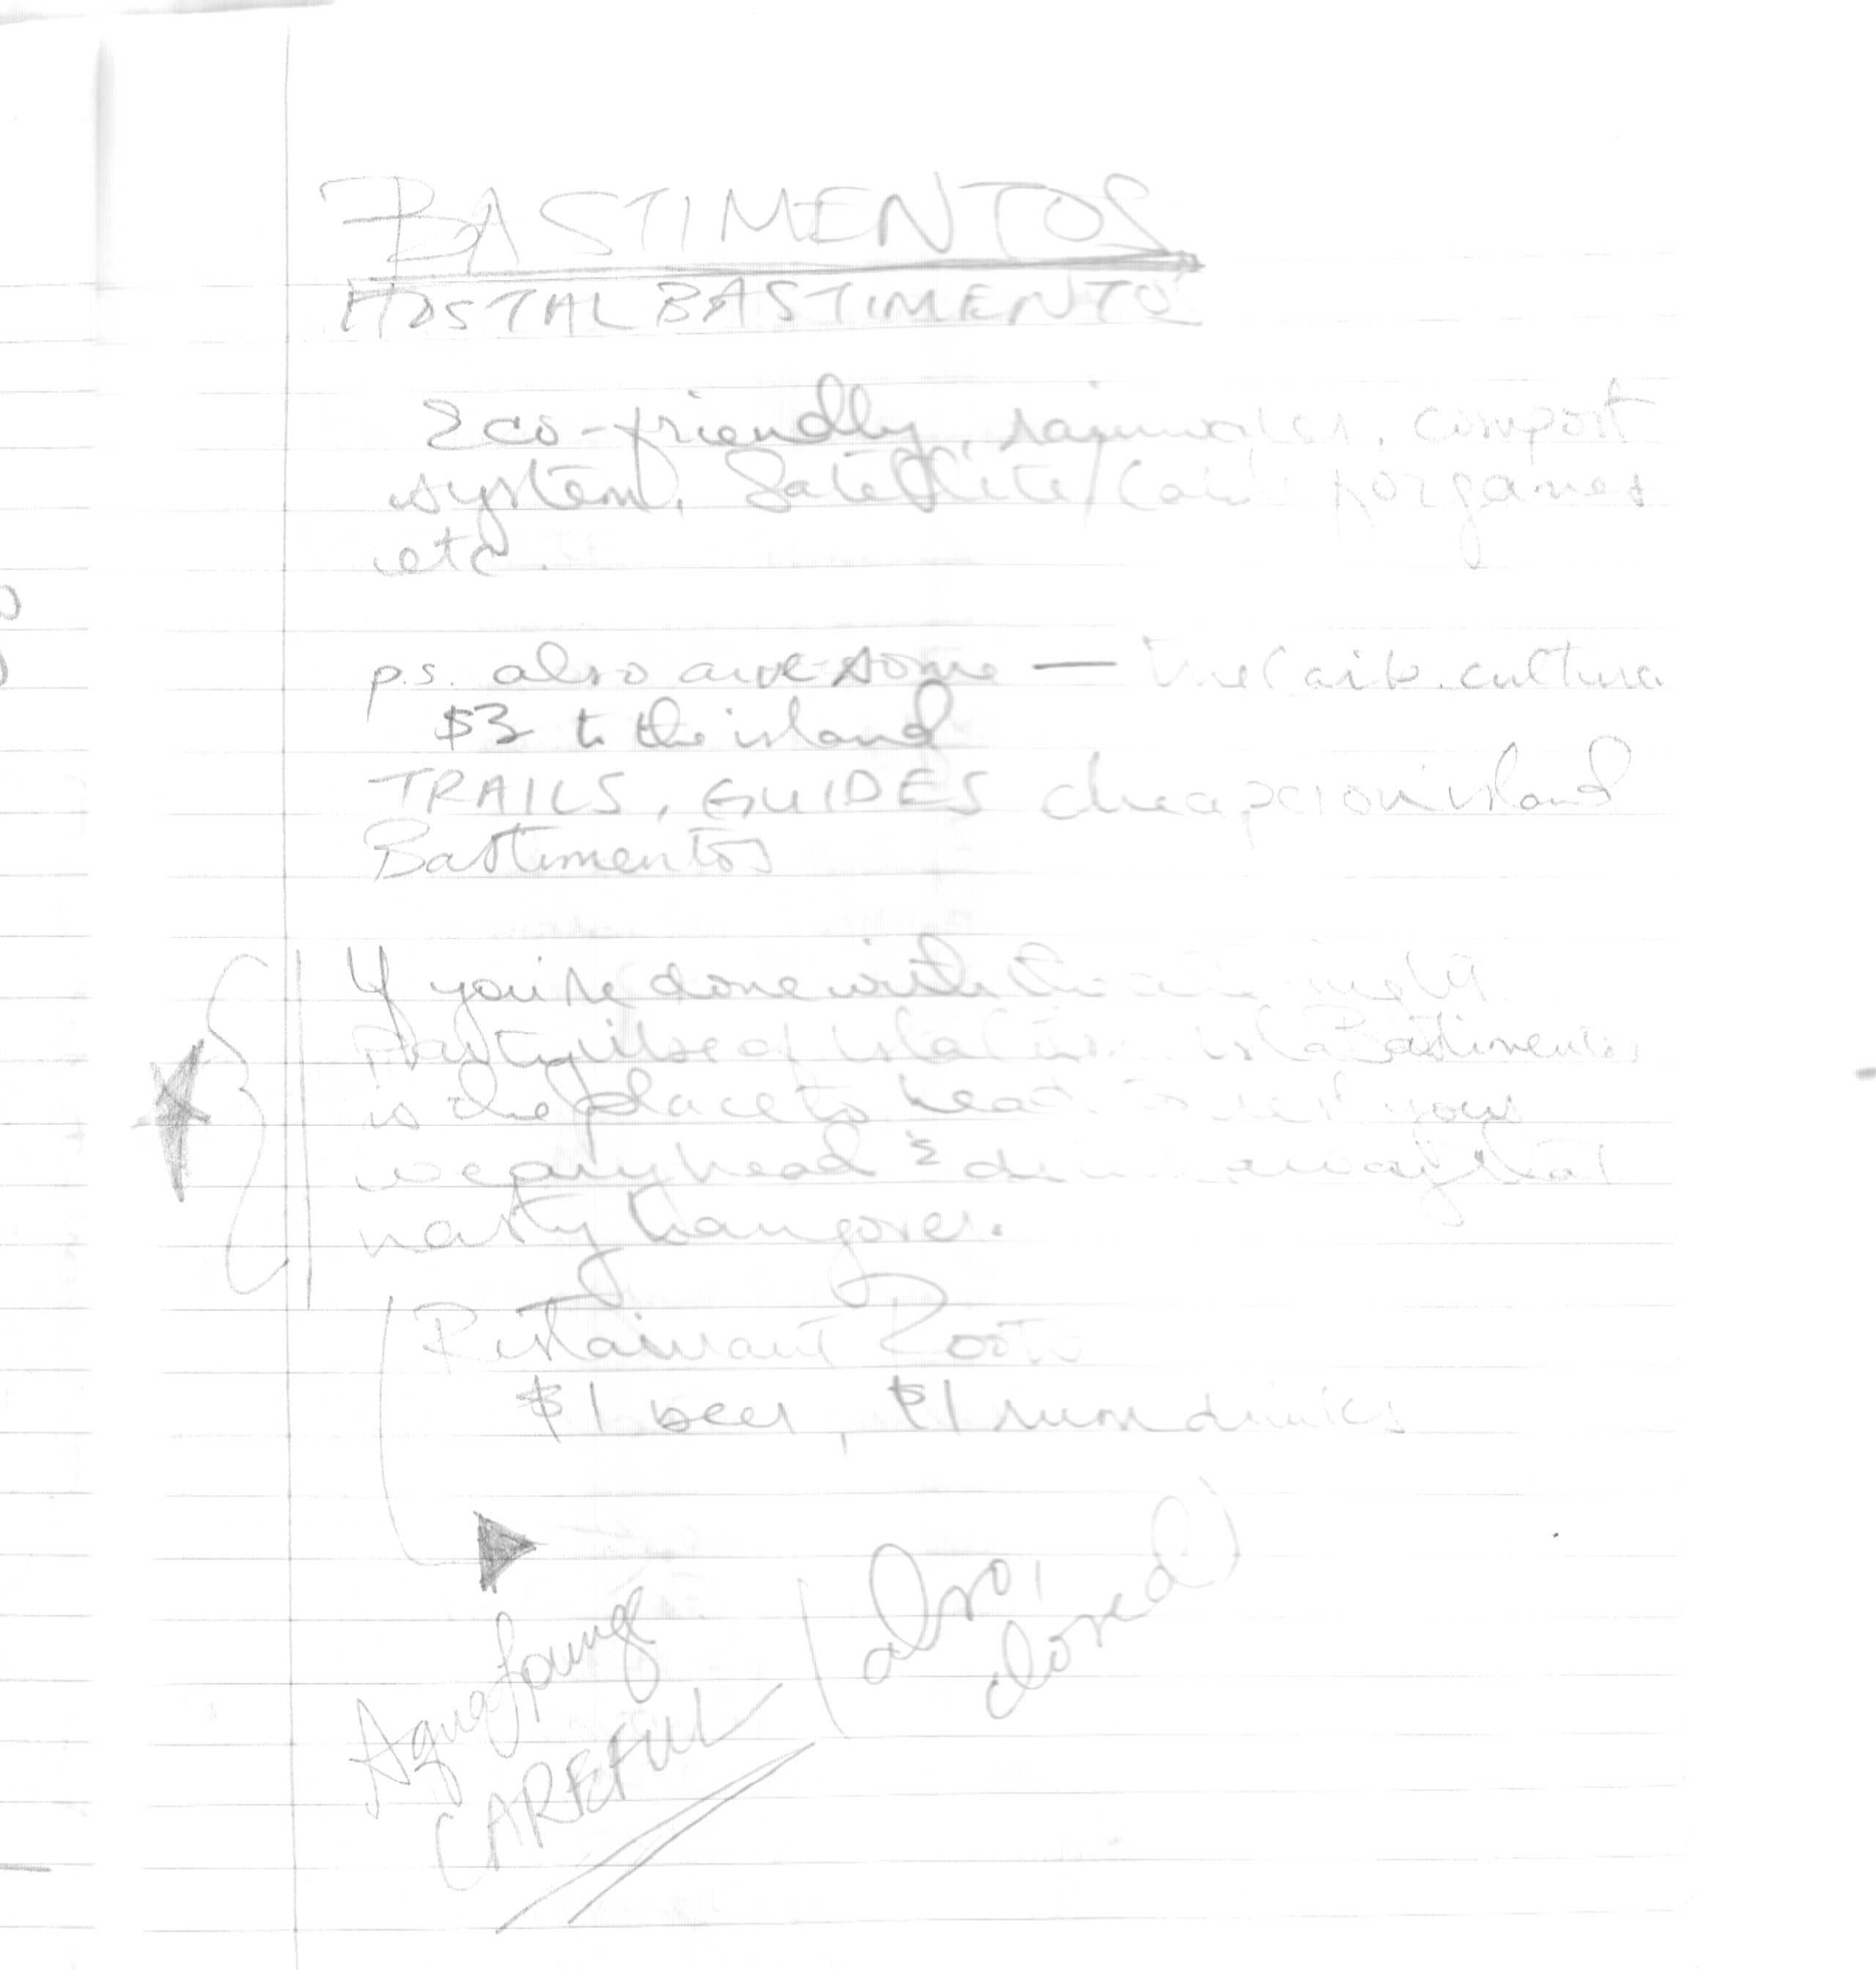 BASTIMENTOS
HOSTAL BASTIMENTO
Eco-friendly, rainwater, compost
system. Satellite/Cable for games
etc.
p.s. also awesome — True Carib. culture
$3 to the island
TRAILS, GUIDES cheaper on island
Bastimentos
If you're done with the late-night
party vibe of Isla Colon, Isla Bastimentos
is the place to head to rest your
weary head & away that
nasty hangover.
Restaurant Roots
$1 beer, $1 rum drinks
Aqua Lounge
CAREFUL
(also,
closed)